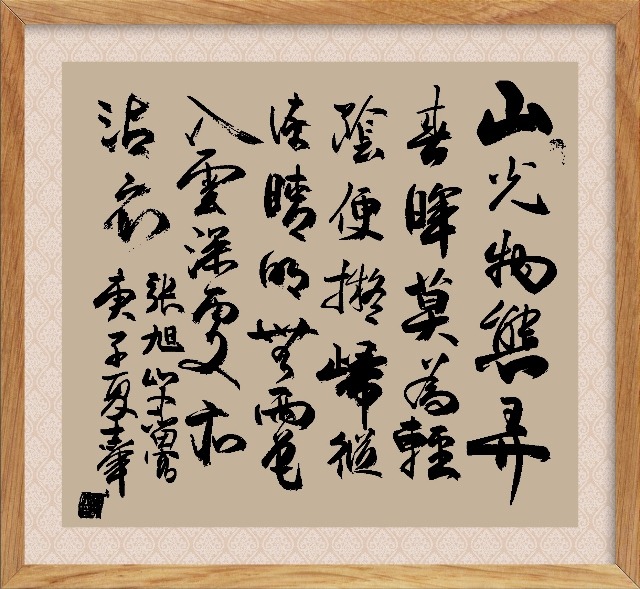 山光物態弄
春暉莫為輕
陰便擬歸縱
使晴明無雨色
入雲深處亦
沾衣
張旭
庚子夏